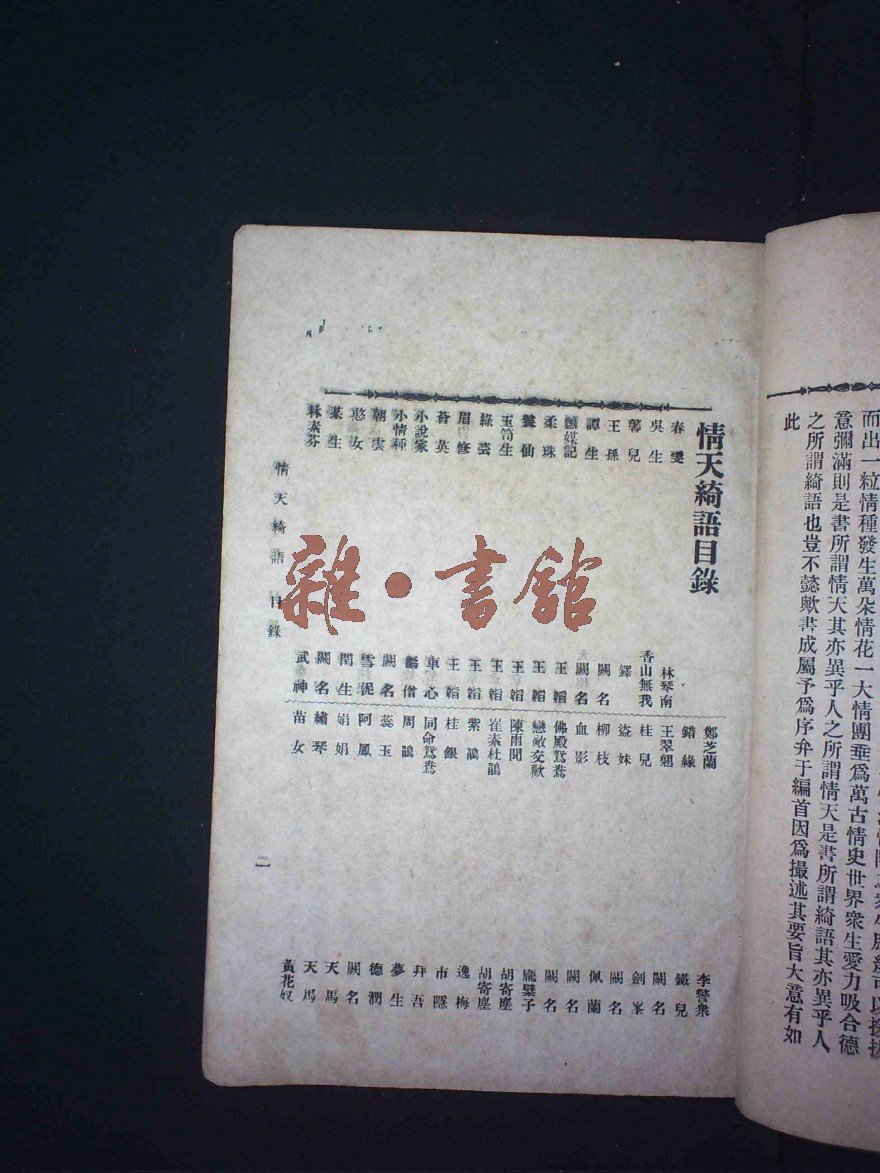 而出一粒情種發生萬朵情花一大情團垂爲萬古情史世界衆生愛力吸合德
意彌滿則是書所謂情天其亦異乎人之所謂情天是書所謂綺語其亦異乎人
之所謂綺語也豈不懿歟書成屬予爲序弁于編首因爲撮述其要旨大意有如
此
情天綺語目錄
春雯 林琴南
吳生 香山無我
馨兒 鐸
王孫 闕名
譚生 闕名
鸚媒記 王韜
柔珠 王韜
龔仙 王韜
玉筍生 王韜
綠雲 王韜
眉修 王韜
苔英 車心
小說家 麟僧
小情種 闕名
朝雲 雪泥
憨女 閏生
某生 闕名
林素芬 武神
鄭芝蘭 李警衆
錯緣 鐵兒
王翠翹 闕名
桂兒 劍峯
盜妹 闕名
柳枝 佩蘭
血影 闕名
佛殿鴛鴦 闕名
戀敵交歡 龐檗子
陳雨聞 胡寄塵
崔素杜鵑 胡寄塵
紫鵑 逸梅
桂銀 市隱
同命鴛鴦 拜吾
周鵑 夢生
蕊玉 德潤
阿鳳 闕名
娟娟 天馬
繡琴 天馬
苗女 黃花奴
情天綺語 目錄
二
雜·書館